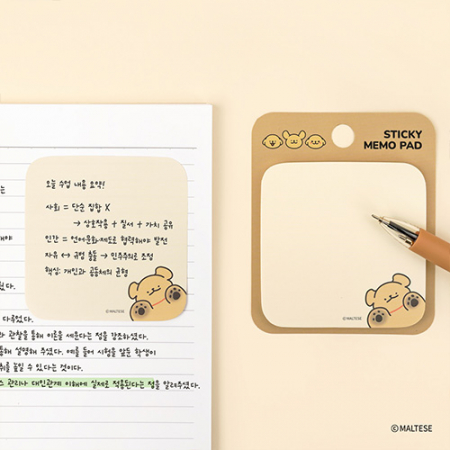 오늘 수업 내용 요약!
사회 = 단순 집합 X
→ 상호작용 + 질서 + 가치 공유
인간 = 언어·문화·제도로 협력해야 발전
자유 ↔ 규칙 충돌 → 민주주의로 조정
핵심: 개인과 공동체의 균형
©MALTESE
는
해야
다.
다루었다.
와 관찰을 통해 이론을 세운다는 점을 강조하셨다.
통해 설명해 주셨다. 예를 들어 시험을 앞둔 학생이
취를 높일 수 있다는 것이다.
스 관리나 대인관계 이해에 실제로 적용된다는 점을 알려주셨다.
STICKY
MEMO PAD
©MALTESE
©MALTESE